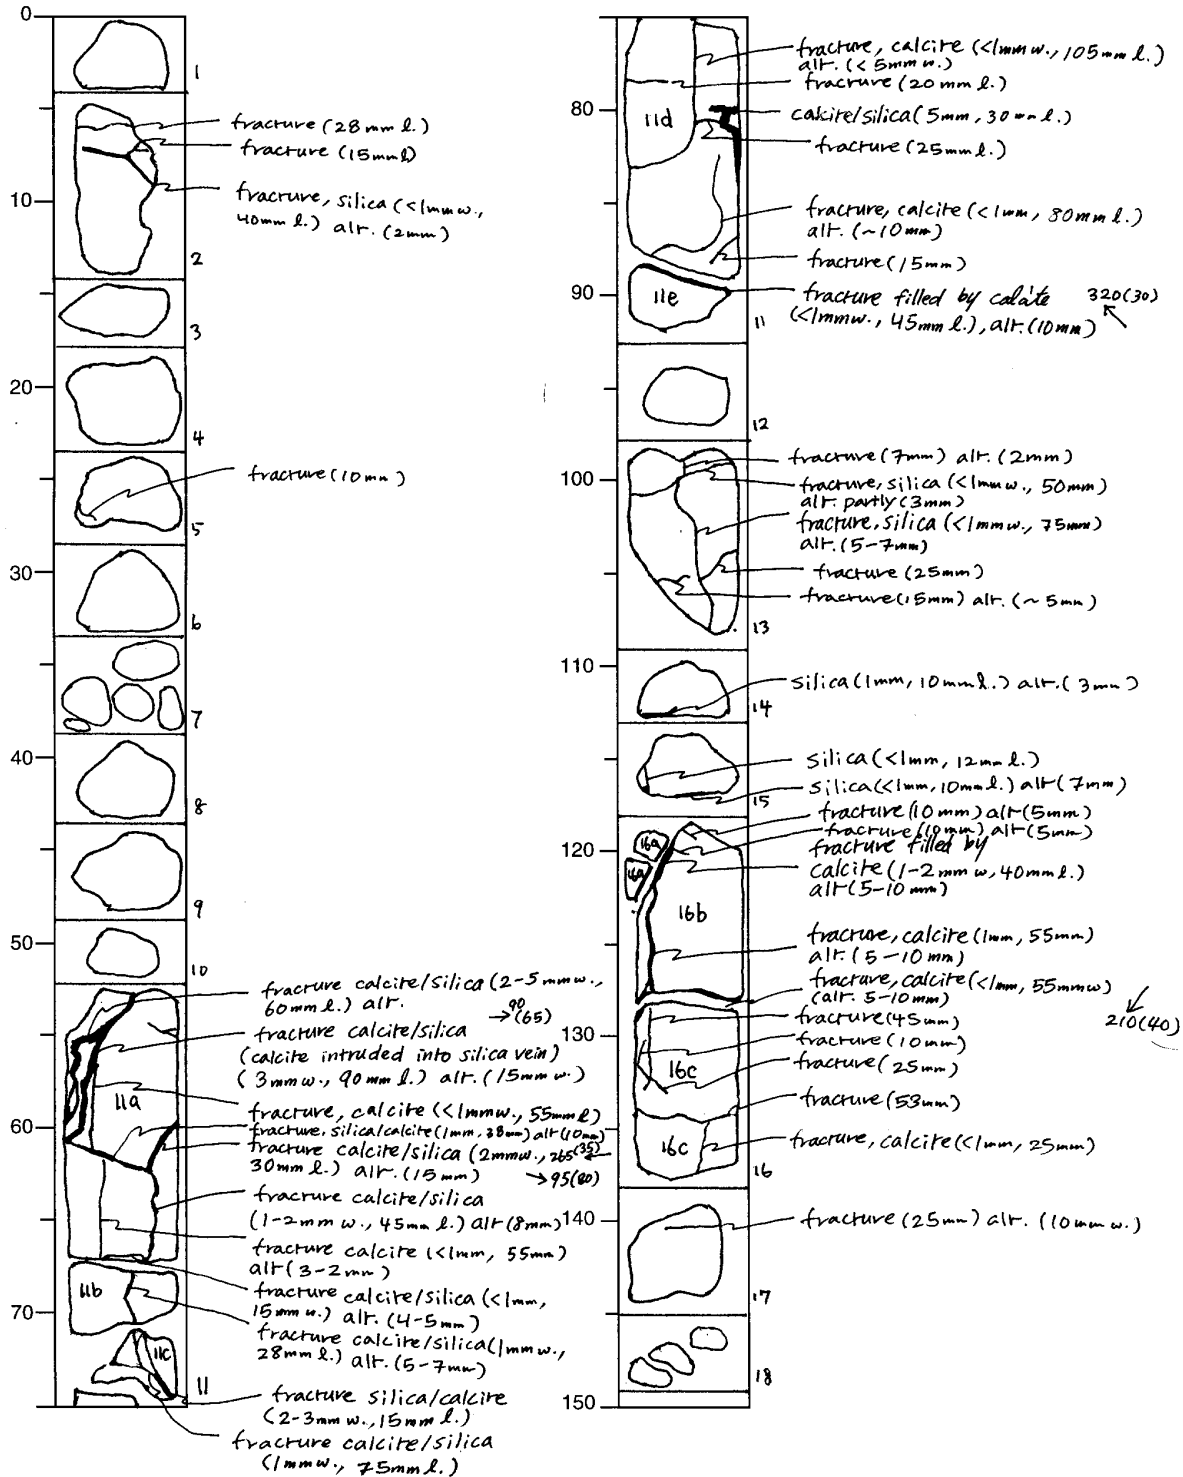 0
1
fracture (28mm l.)
fracture (15mm l)
10
fracture, silica (<1mmw.,
40mm l.) alt. (2mm)
2
3
20
4
fracture (10mm)
5
30
6
7
40
8
9
50
10
fracture calcite/silica (2-5mmw.,
60mm l.) alt.
90
→(65)
fracture calcite/silica
(calcite intruded into silica vein)
(3mmw., 90mm l.) alt. (15mmw.)
11a
fracture, calcite (<1mmw., 55mm l)
60
fracture, silica/calcite (1mm, 38mm) alt (10mm)
fracture calcite/silica (2mmw., 265(35)
30mm l.) alt. (15mm) →95(80)
fracture calcite/silica
(1-2mm w., 45mm l.) alt (8mm)
fracture calcite (<1mm, 55mm)
alt (3-2mm)
11b
fracture calcite/silica (<1mm,
70
15mm w.) alt. (4-5mm)
fracture calcite/silica (1mmw.,
28mm l.) alt. (5-7mm)
11c
11
fracture silica/calcite
(2-3mm w., 15mm l.)
fracture calcite/silica
(1mmw., 75mm l.)
fracture, calcite (<1mmw., 105mm l.)
alt. (<5mmw.)
fracture (20mm l.)
80
11d
calcite/silica (5mm, 30mm l.)
fracture (25mm l.)
fracture, calcite (<1mm, 80mm l.)
alt. (~10mm)
fracture (15mm)
90
11e
fracture filled by calcite 320(30)
(<1mmw., 45mm l.), alt. (10mm)
11
12
fracture (7mm) alt. (2mm)
100
fracture, silica (<1mmw., 50mm)
alt. partly (3mm)
fracture, silica (<1mmw., 75mm)
alt. (5-7mm)
fracture (25mm)
fracture (15mm) alt. (~5mm)
13
110
silica (1mm, 10mm l.) alt. (3mm)
14
silica (<1mm, 12mm l.)
silica (<1mm, 10mm l.) alt (7mm)
15
fracture (10mm) alt (5mm)
fracture (10mm) alt (5mm)
16a
120
fracture filled by
16a
calcite (1-2mm w, 40mm l.)
alt (5-10mm)
16b
fracture, calcite (1mm, 55mm)
alt. (5-10mm)
fracture, calcite (<1mm, 55mmw)
(alt. 5-10mm)
210(40)
130
fracture (45mm)
fracture (10mm)
16c
fracture (25mm)
fracture (53mm)
16c
fracture, calcite (<1mm, 25mm)
16
140
fracture (25mm) alt. (10mm w.)
17
18
150